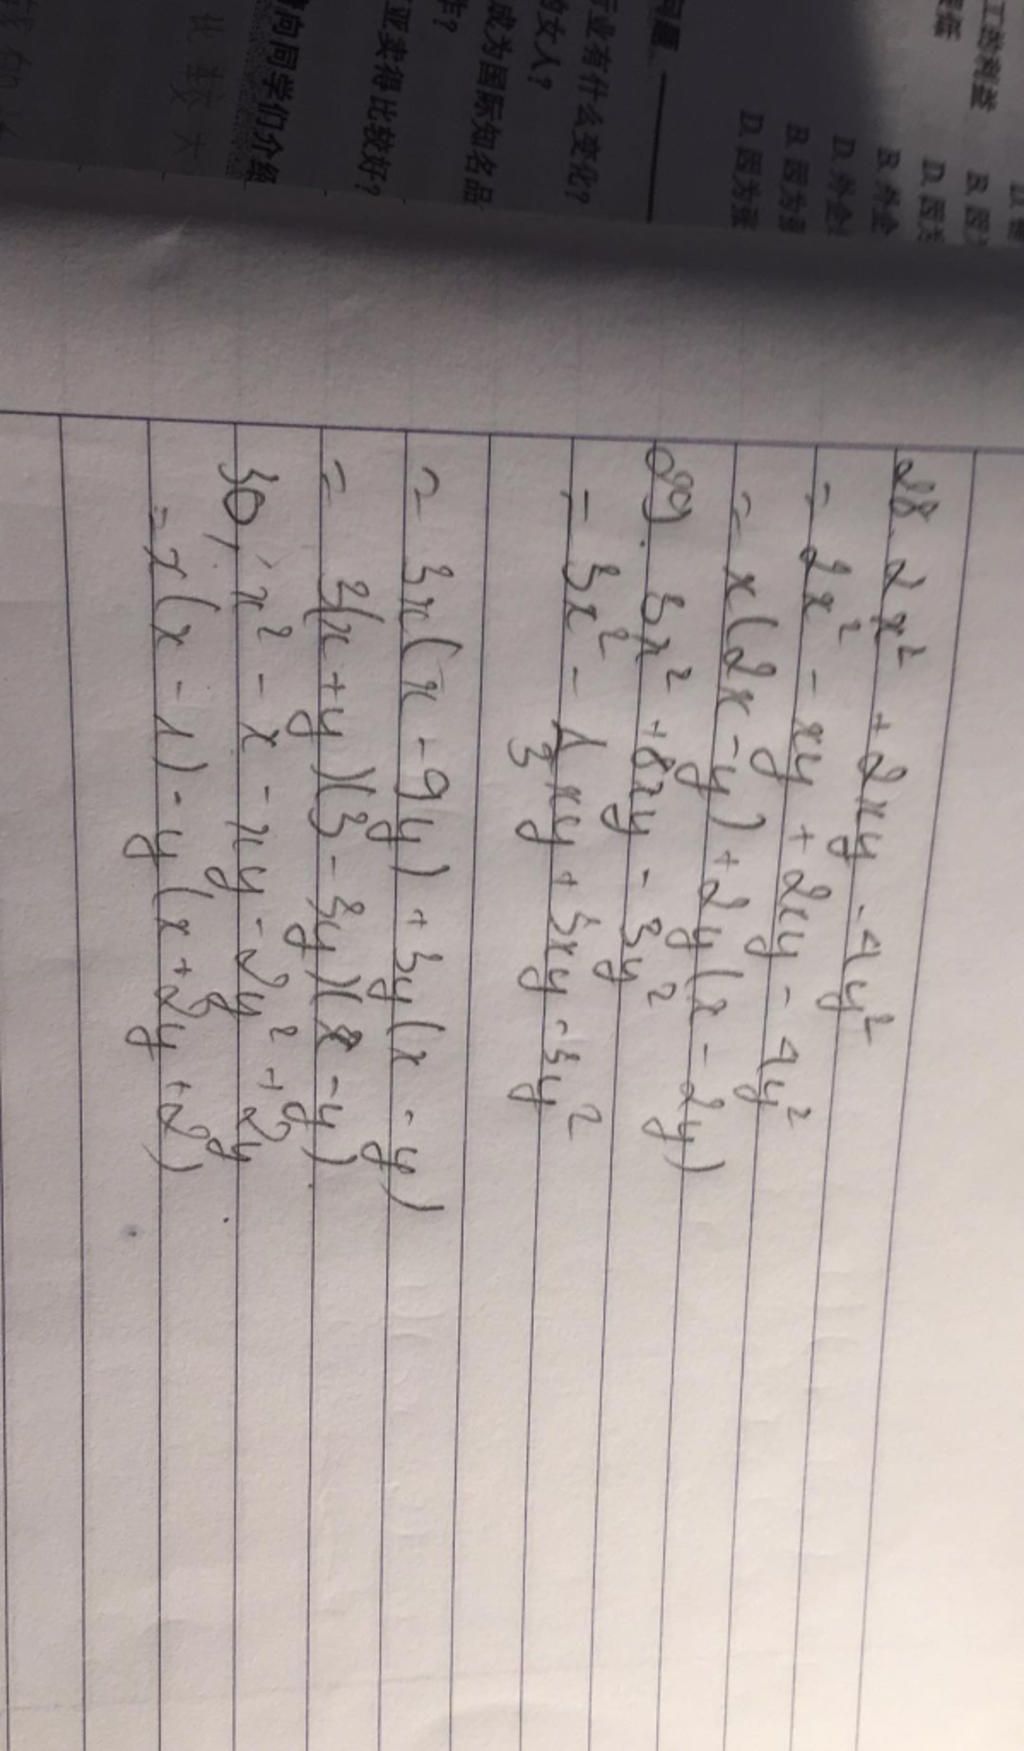 工的利益
B. 因为
D. 因为
B. 外企
D. 外企
B. 因为
D. 因为
问题。
行业有什么变化?
的女人?
成为国际知名品
亚卖得比较好?
向同学们介绍
比较大
28. 2x² + 2xy - 4y²
= 2x² - xy + 2xy - 4y²
= x(2x - y) + 2y(x - 2y)
29. 3x² + 8xy - 3y²
= 3x² - \frac{1}{3}xy + 3xy - 3y²
= 3x(x - 9y) + 3y(x - y)
= 3(x + y)(3 - 3y)(x - y)
30, x² - x - xy - 2y² + 2y
= x(x - 1) - y(x + 2y + 2)